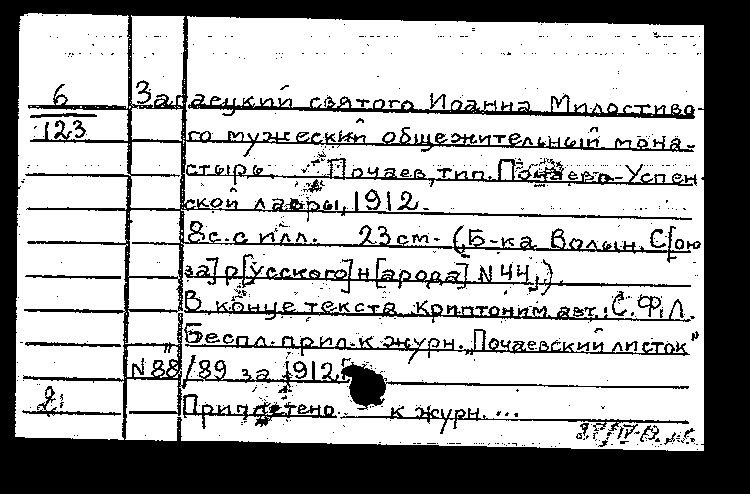 6 Загаецкий святого Иоанна Милостиво-
123 го мужеский общежительный мона-
стырь. Почаев, тип. Почаево-Успен-
ской лавры, 1912.
8 с. с илл. 23 см. (Б-ка Волын. С[ою
за] р[усского] н[арода] N 44,).
В конце текста криптоним авт.: С.Ф.Л.
Беспл. прил. к журн. „Почаевский листок"
N 88/89 за 1912.
2. Приплетено к журн. ...